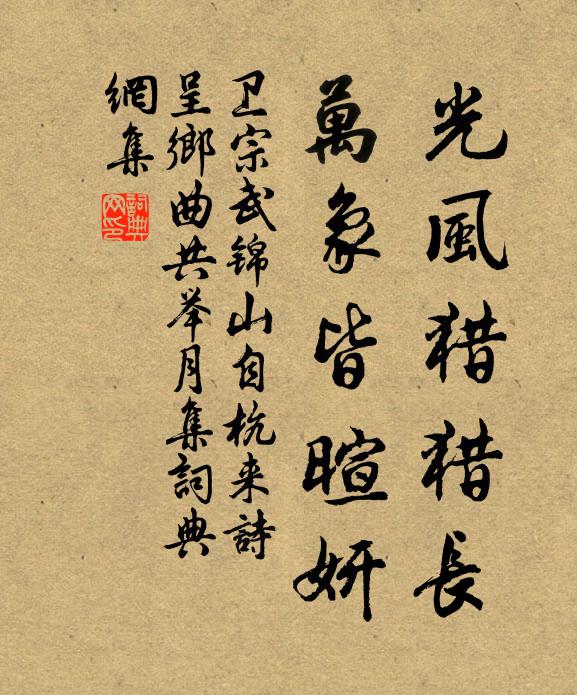 光風猎猎長
萬象皆暄妍
卫宗武锦山自杭来詩
呈鄉曲共举月集詞典
網集
詞典网印